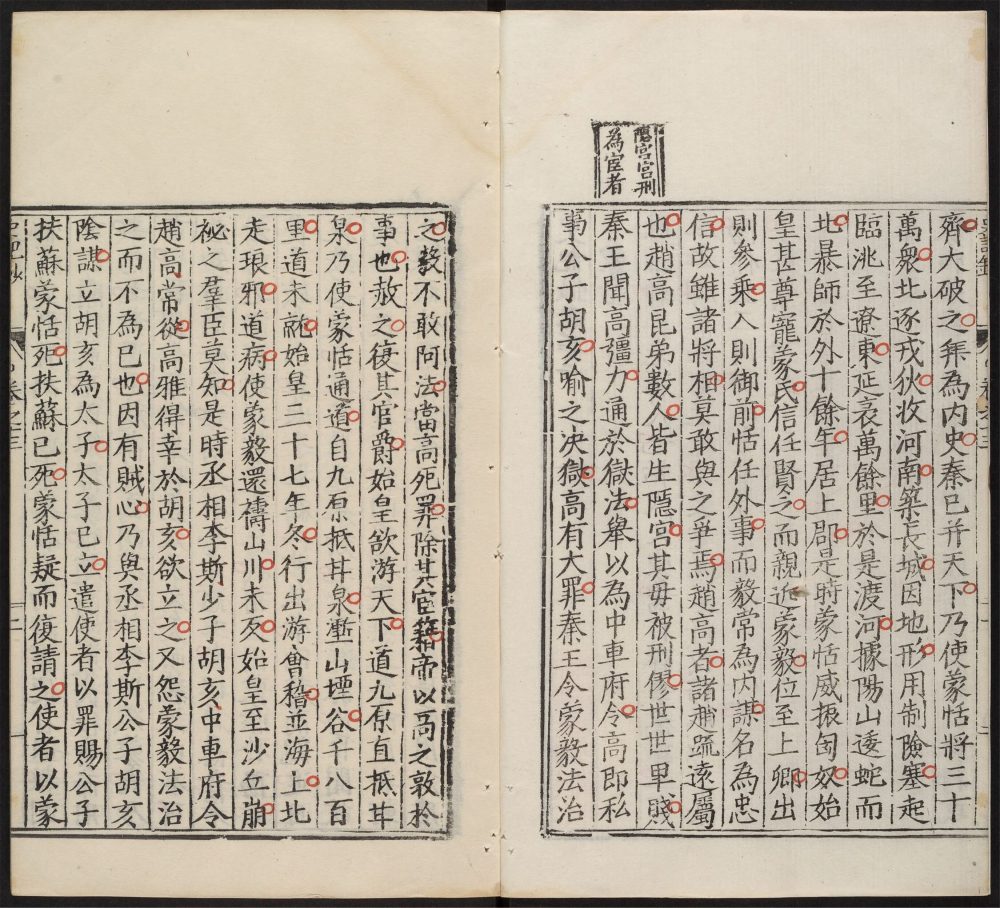 隱宮宮刑
為宦者
齊大破之拜為内史秦已并天下乃使蒙恬將三十
萬衆北逐戎狄收河南築長城因地形用制險塞起
臨洮至遼東延袤萬餘里於是渡河據陽山逶蛇而
北暴師於外十餘年居上郡是時蒙恬威振匈奴始
皇甚尊寵蒙氏信任賢之而親近蒙毅位至上卿出
則參乘入則御前恬任外事而毅常為内謀名為忠
信故雖諸將相莫敢與之爭焉趙高者諸趙疏遠屬
也趙高昆弟數人皆生隱宮其母被刑僇世世卑賤
秦王聞高彊力通於獄法舉以為中車府令高即私
事公子胡亥喻之决獄高有大罪秦王令蒙毅法治
之毅不敢阿法當高死罪除其宦籍帝以高之敦於
事也赦之復其官爵始皇欲游天下道九原直抵甘
泉乃使蒙恬通道自九原抵甘泉壍山堙谷千八百
里道未就始皇三十七年冬行出游會稽並海上北
走琅邪道病使蒙毅還禱山川未反始皇至沙丘崩
祕之羣臣莫知是時丞相李斯少子胡亥中車府令
趙高常從高雅得幸於胡亥欲立之又怨蒙毅法治
之而不為已也因有賊心乃與丞相李斯公子胡亥
陰謀立胡亥為太子太子已立遣使者以罪賜公子
扶蘇蒙恬死扶蘇已死蒙恬疑而復請之使者以蒙
卷之三
二